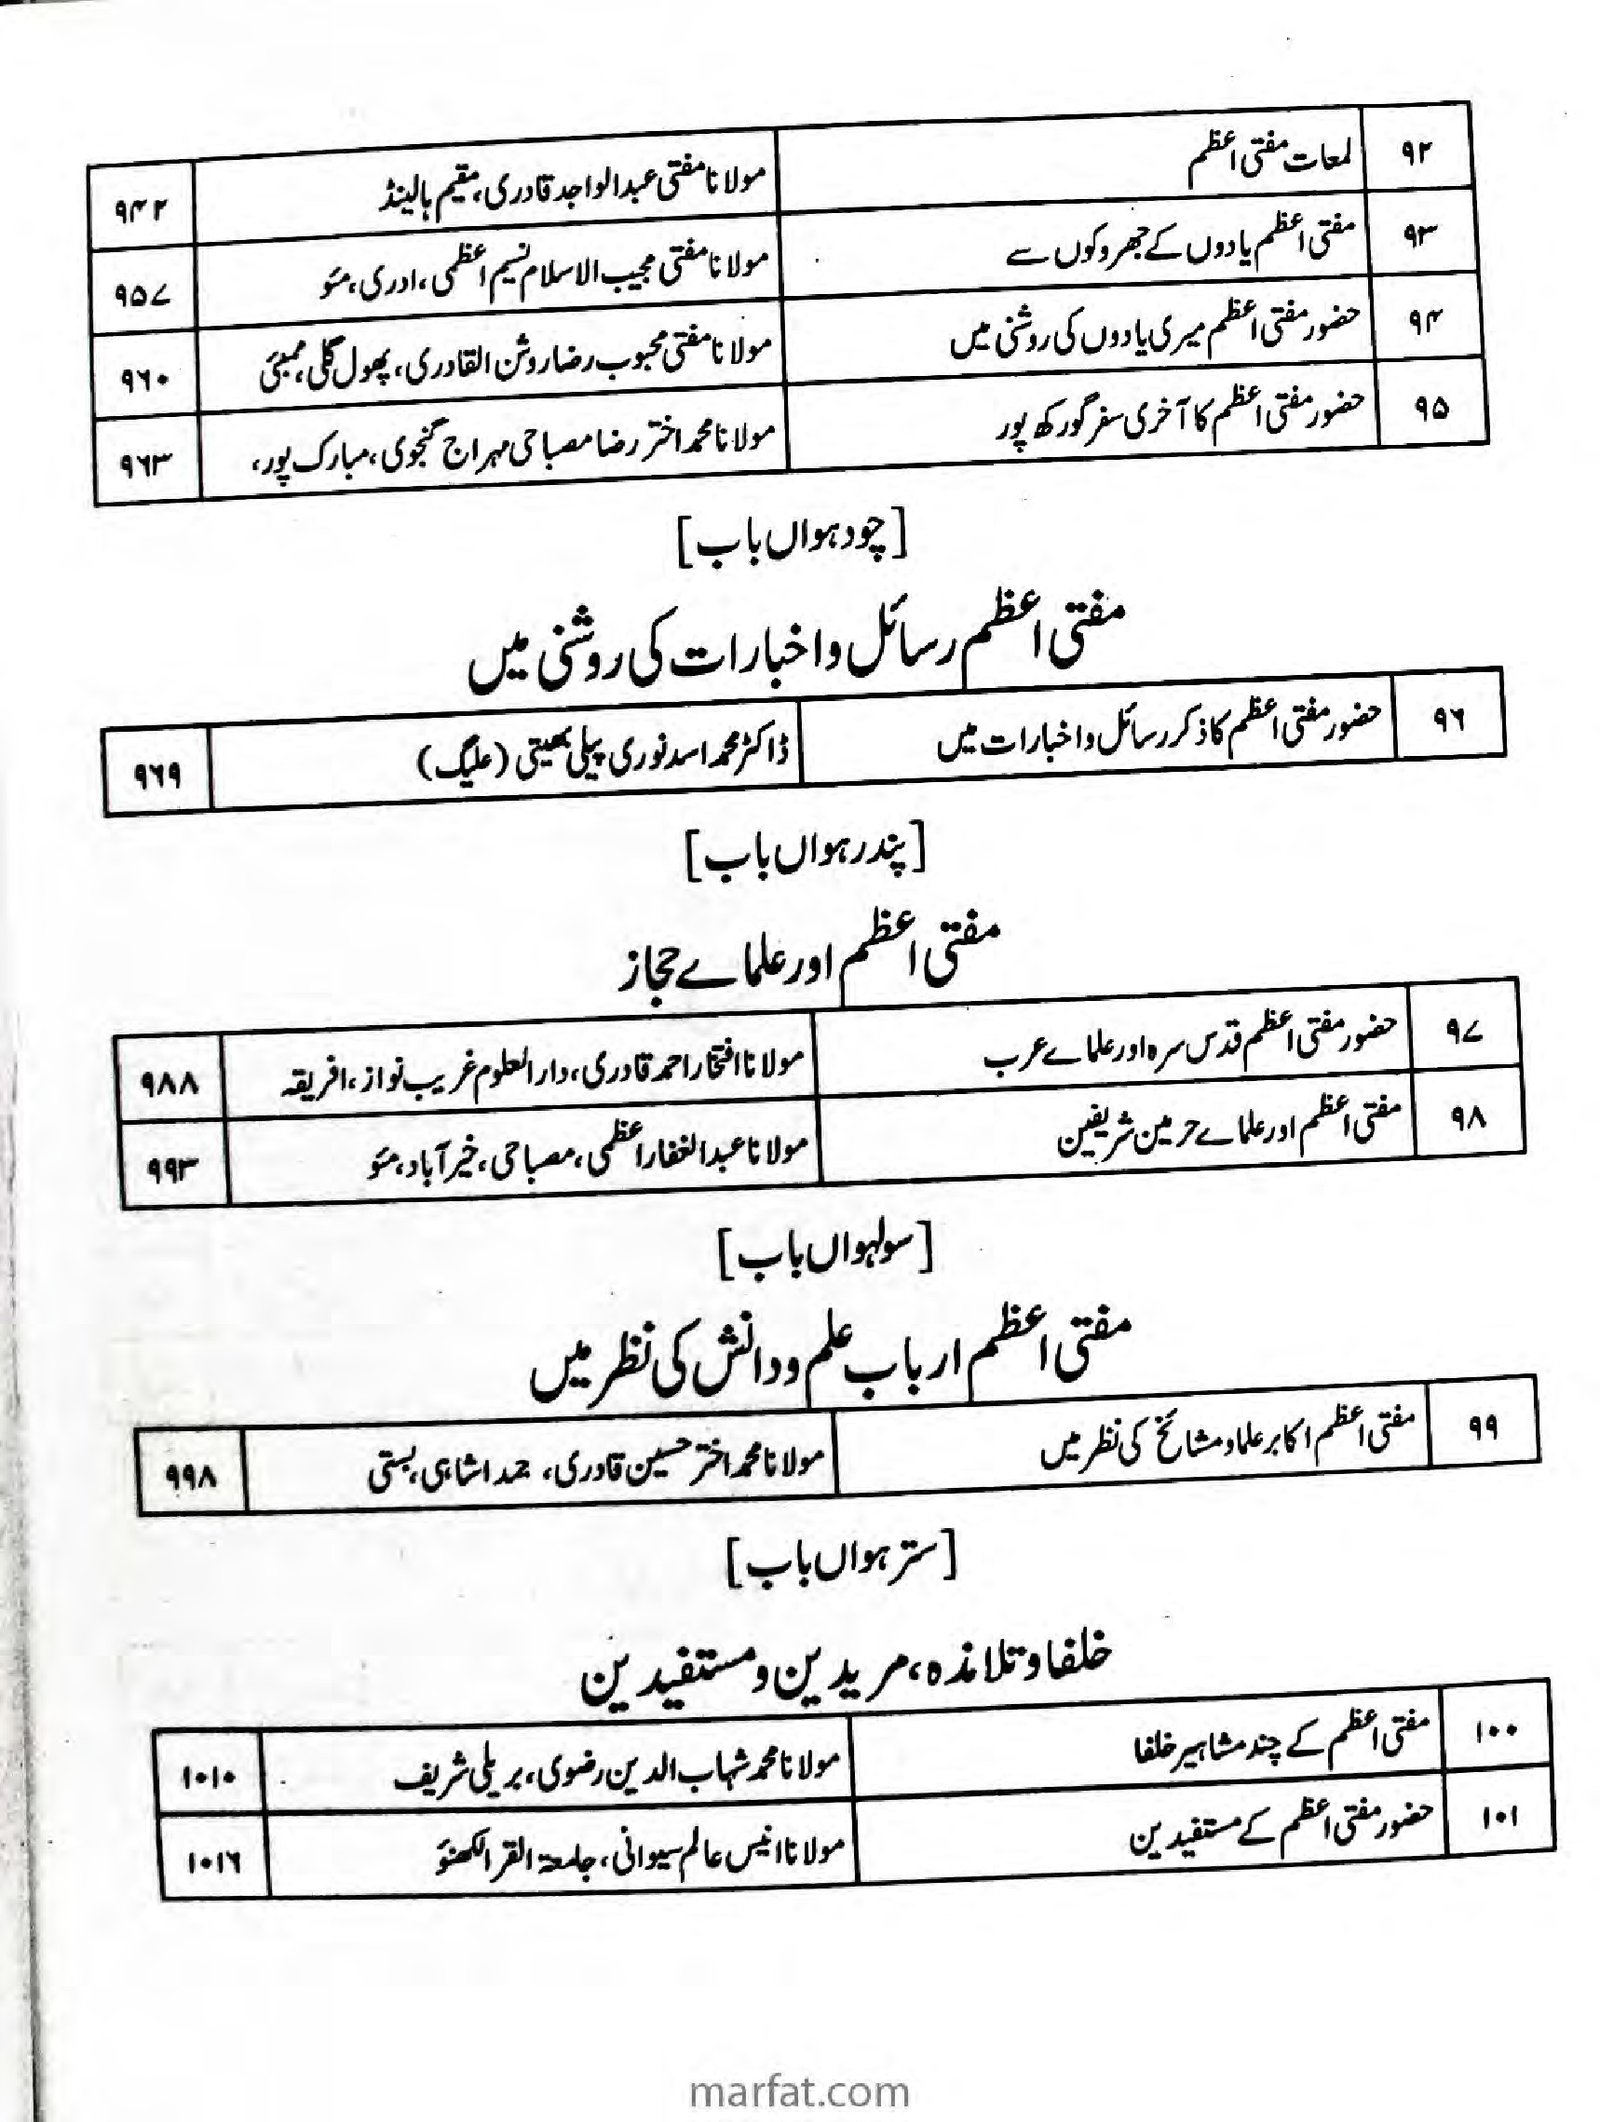 ۹۲ لمعات مفتی اعظم مولانا مفتی عبدالواجد قادری، مقیم ہالینڈ ۹۴۲
۹۳ مفتی اعظم یادوں کے جھروکوں سے مولانا مفتی مجیب الاسلام نسیم اعظمی، ادری، مئو ۹۵۷
۹۴ حضور مفتی اعظم میری یادوں کی روشنی میں مولانا مفتی محبوب رضا روشن القادری، پھول گلی، ممبئی ۹۶۰
۹۵ حضور مفتی اعظم کا آخری سفر گورکھ پور مولانا محمد اختر رضا مصباحی مہراج گنجوی، مبارک پور، ۹۶۳
[چودہواں باب]
مفتی اعظم رسائل و اخبارات کی روشنی میں
۹۶ حضور مفتی اعظم کا ذکر رسائل و اخبارات میں ڈاکٹر محمد اسد نوری پیلی بھیتی (علیگ) ۹۶۹
[پندرہواں باب]
مفتی اعظم اور علماے حجاز
۹۷ حضور مفتی اعظم قدس سرہ اور علماے عرب مولانا افتخار احمد قادری، دارالعلوم غریب نواز، افریقہ ۹۸۸
۹۸ مفتی اعظم اور علماے حرمین شریفین مولانا عبدالغفار اعظمی، مصباحی، خیرآباد، مئو ۹۹۳
[سولہواں باب]
مفتی اعظم ارباب علم و دانش کی نظر میں
۹۹ مفتی اعظم اکابر علما و مشائخ کی نظر میں مولانا محمد اختر حسین قادری، جمدا شاہی، بستی ۹۹۸
[سترہواں باب]
خلفا و تلامذہ، مریدین و مستفیدین
۱۰۰ مفتی اعظم کے چند مشاہیر خلفا مولانا محمد شہاب الدین رضوی، بریلی شریف ۱۰۱۰
۱۰۱ حضور مفتی اعظم کے مستفیدین مولانا انیس عالم سیوانی، جامعۃ القرا لکھنؤ ۱۰۱۶
marfat.com